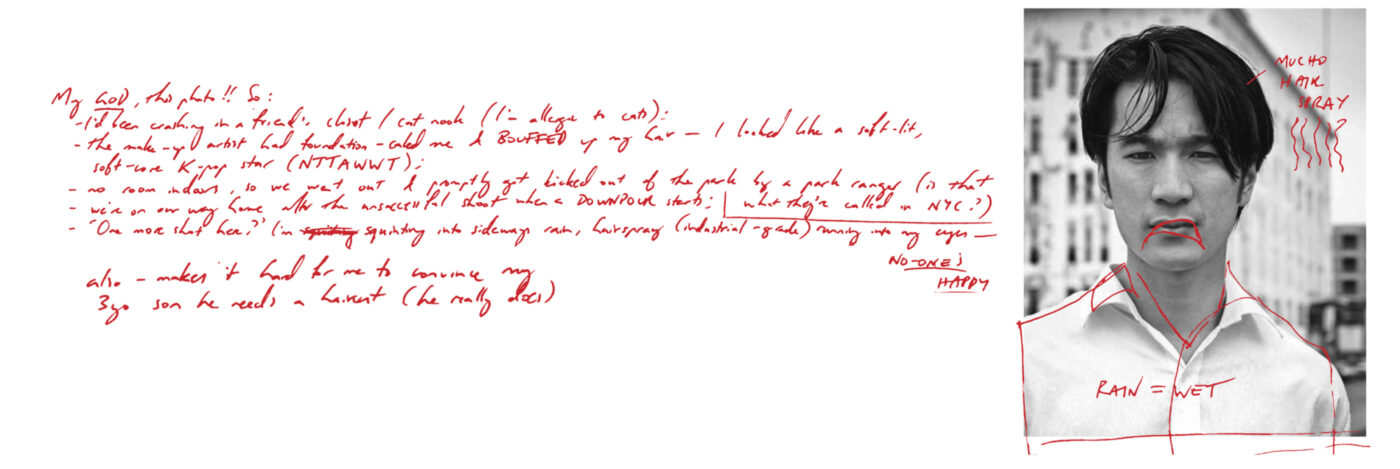 My GOD, this photo!! So:
- I'd been crashing in a friend's closet / cat nook (I'm allergic to cats);
- the make-up artist had foundation-caked me & BOUFFED up my hair — I looked like a soft-lit,
soft-core K-pop star (NTTAWWT);
- no room indoors, so we went out & promptly got kicked out of the park by a park ranger (is that
what they're called in NYC?)
- we're on our way home after the unsuccessful shoot when a DOWNPOUR starts;
- "One more shot here?" I'm squinting into sideways rain, hairspray (industrial-grade) running into my eyes —
NO-ONE'S
HAPPY
also - makes it hard for me to convince my
3yo son he needs a haircut (he really does)
MUCHO
HAIR
SPRAY
RAIN = WET